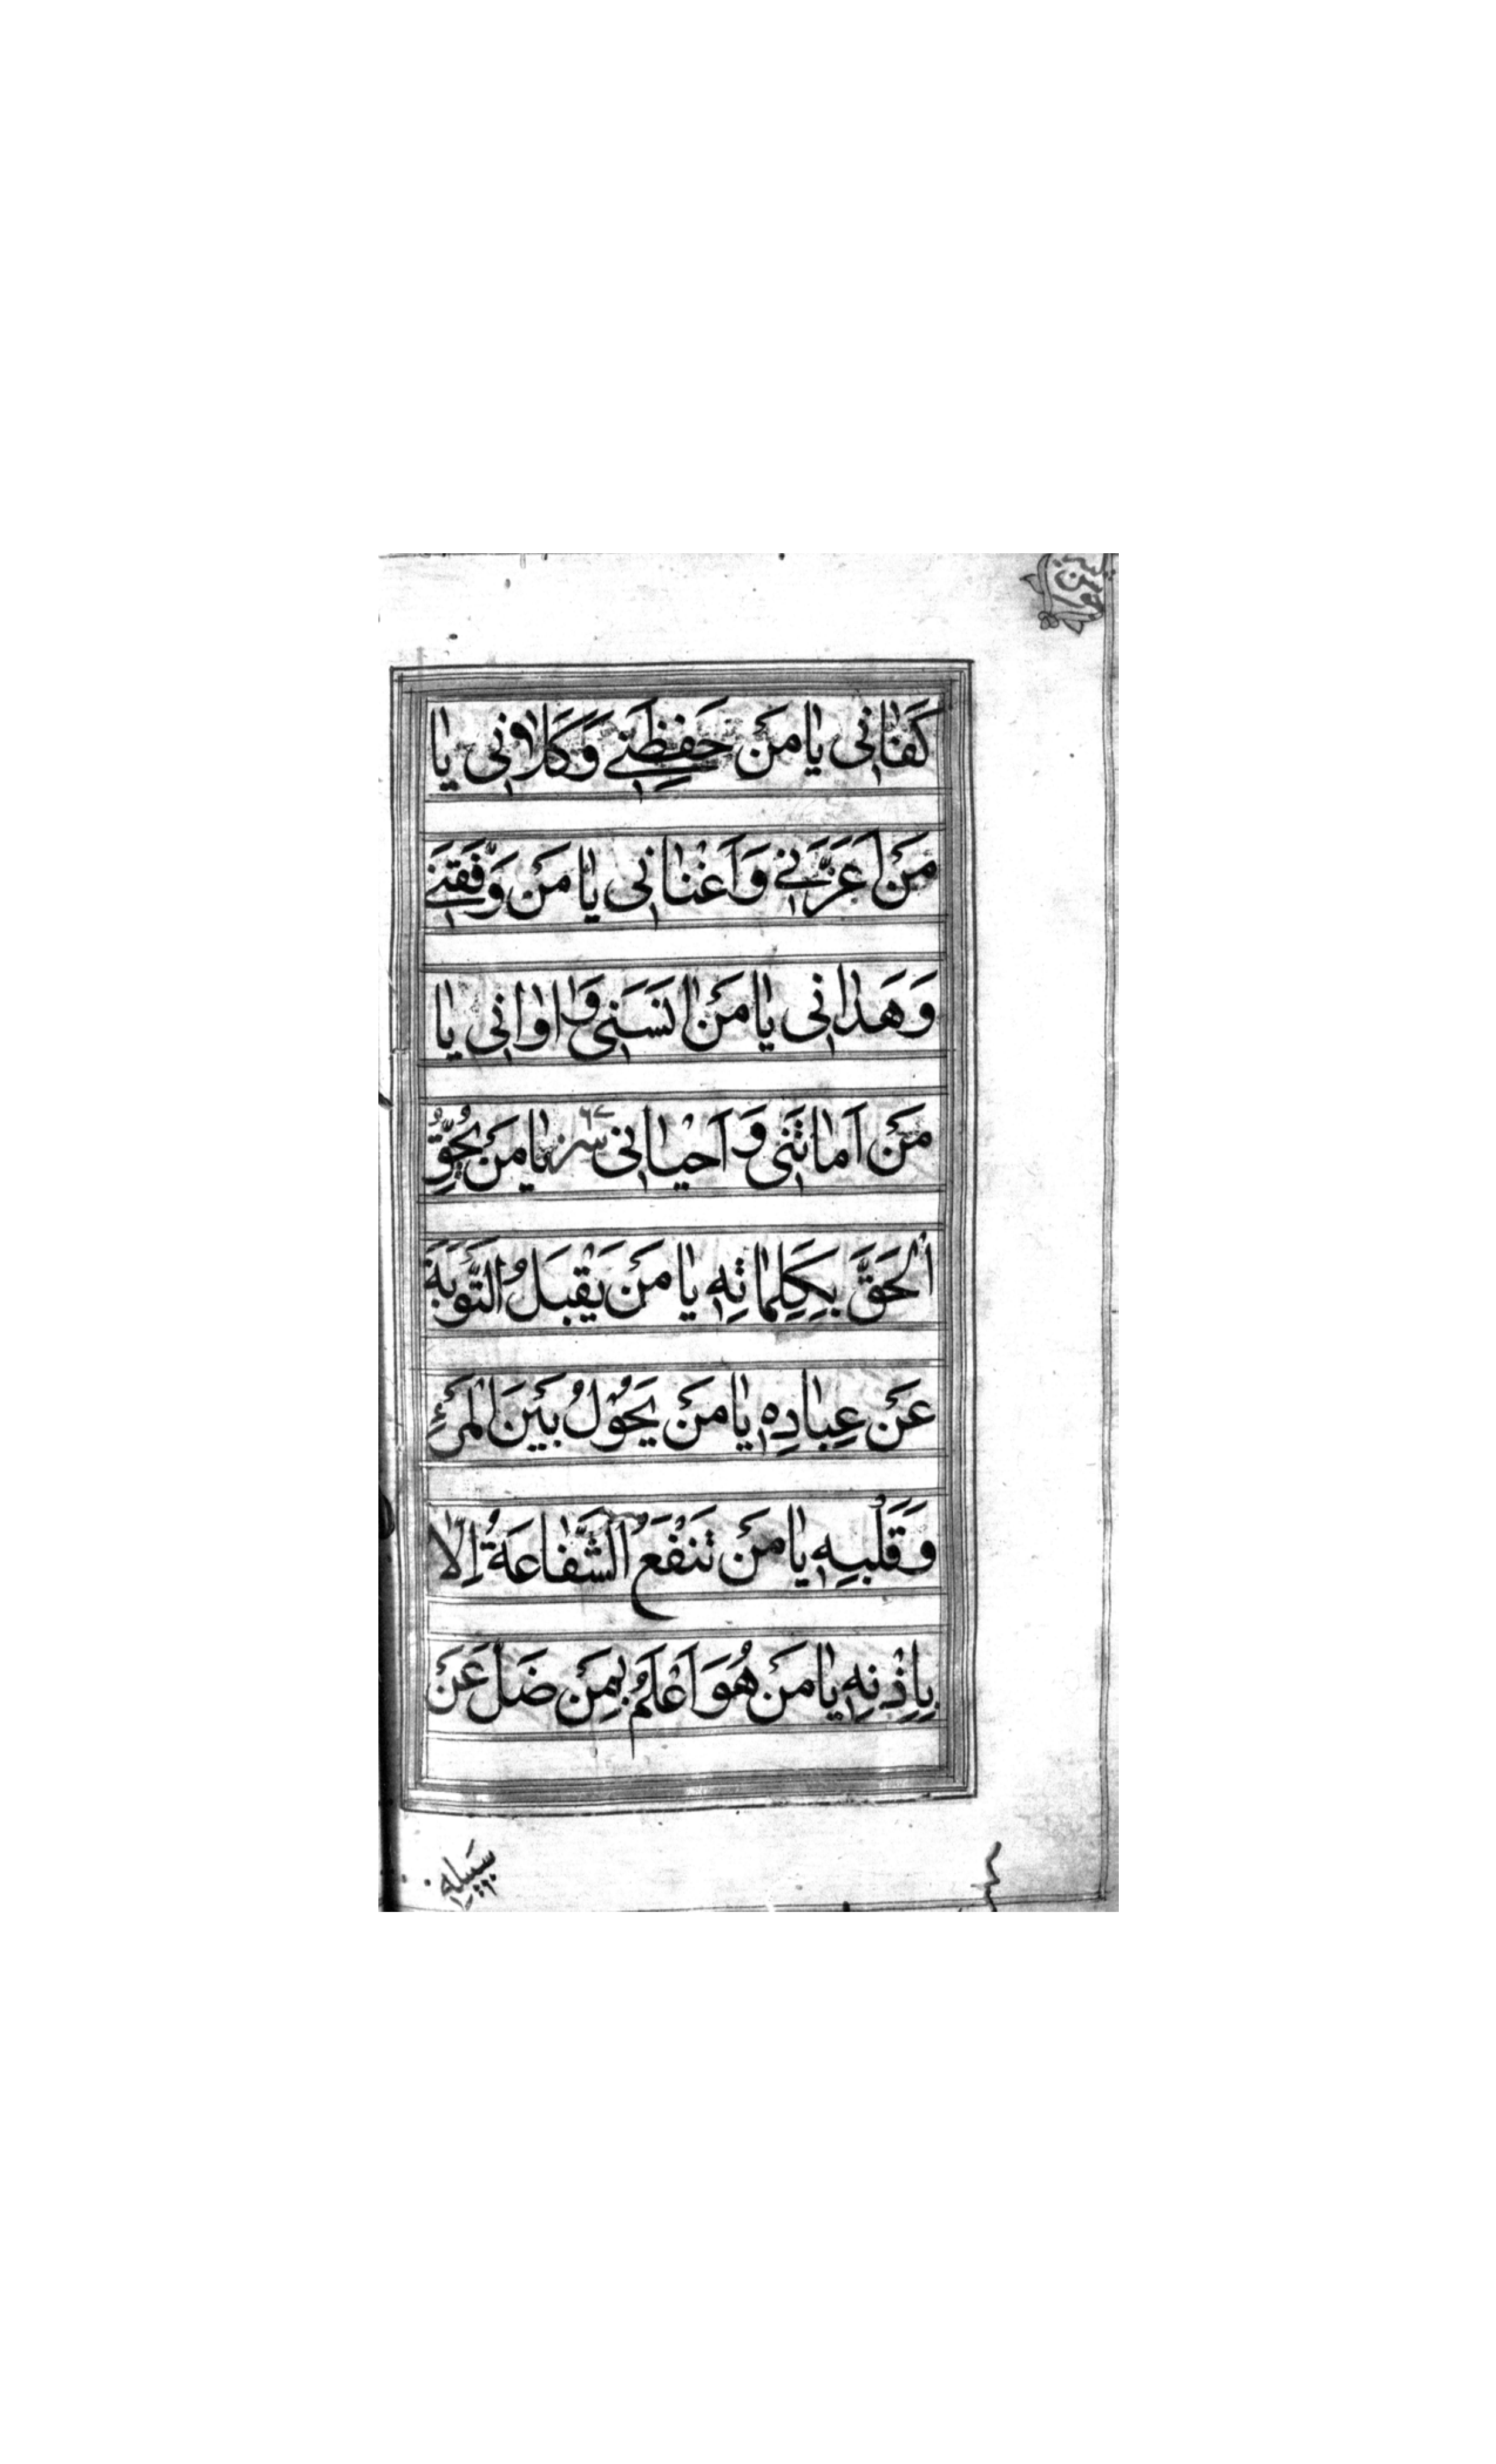 كَفانى يا مَنْ حَفِظَنى وَكَلاَنى يا
مَنْ اَعَزَّنى وَاَغْنانى يا مَنْ وَفَّقَنى
وَهَدانى يا مَنْ انَسَنى وَ اوانى يا
مَنْ اَماتَنى وَ اَحْيانى يا مَنْ يُحِقُّ
الْحَقَّ بِكَلِماتِهِ يا مَنْ يَقْبَلُ التَّوْبَةَ
عَنْ عِبادِهِ يا مَنْ يَحُوْلُ بَيْنَ الْمَرْءِ
وَقَلْبِهِ يا مَنْ تَنْفَعُ الشَّفاعَةُ اِلّا
بِاِذْنِهِ يا مَنْ هُوَ اَعْلَمُ بِمَنْ ضَلَ عَنْ
سَبيلِهِ